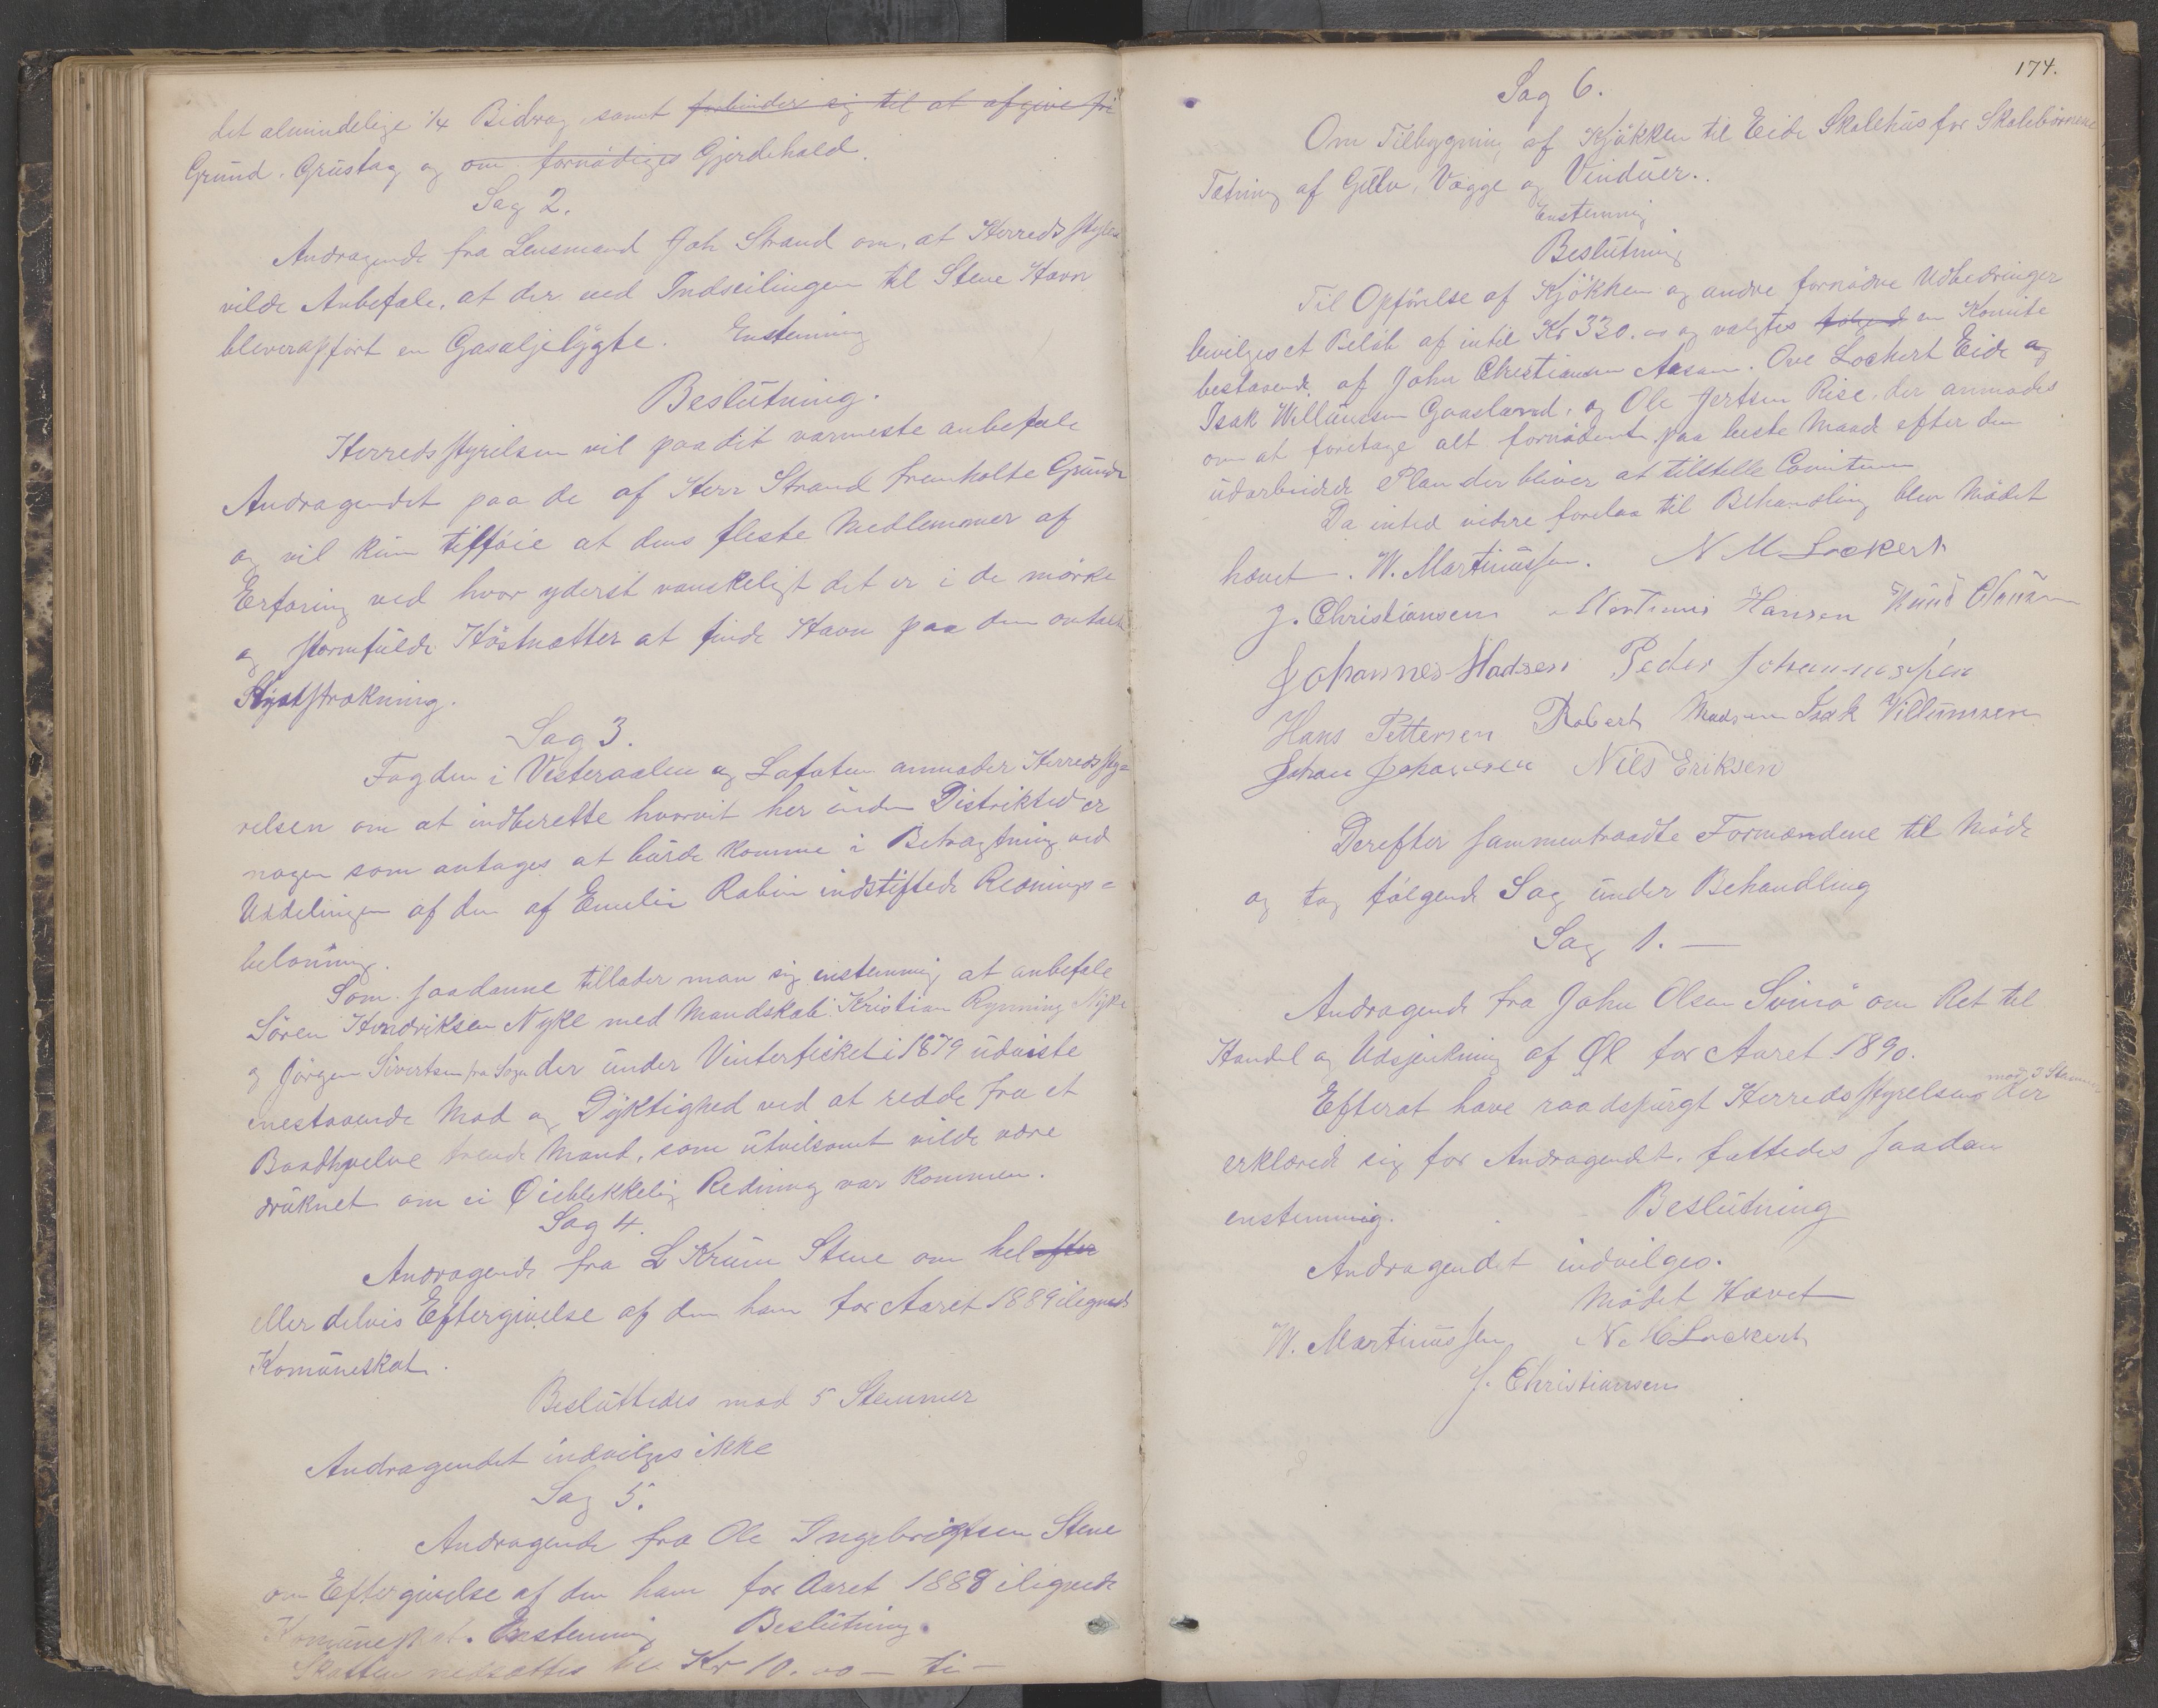 det almindelige 1/4 Bidrag samt forbinder sig til at afgive fri
Grund, Grustag og om fornødiges Gjerdehold.
Sag 2.
Andragende fra Lensmand Joh Strand om, at Herredsstyrelsen
vilde Anbefale, at der ved Indseilingen til Stene Havn
blev opført en Gasoljelygte. Enstemmig
Beslutning.
Herredsstyrelsen vil paa dit varmeste anbefale
Andragendet paa de af Herr Strand fremholte Grunde
og vil kun tilføie at dens fleste Medlemmer af
Erfaring ved hvor yderst vanskeligt det er i de mørke
og stormfulde Høstnætter at finde Havn paa den omtalte
Kyststrækning.
Sag 3.
Fogden i Vesteraalen og Lofoten anmoder Herredssty-
relsen om at indberette hvorvit her inden Distrikted er
nogen som antages at burde komme i Betragtning ved
Uddelingen af den af Emelie Robin indstiftede Rednings=
belønning.
Som saadanne tillader man sig enstemmig at anbefale
Søren Hendriksen Nyke med Mandskab: Kristian Rynning Nyke
og Jørgen Sivertsen fra Sage der under Vinterfisket i 1879 udviste
enestaaende Mod og Dyktighed ved at redde fra et
Baadhvelve trende Mand, som utvilsomt vilde være
druknet om ei Øieblekkelig Redning var kommen.
Sag 4.
Andragende fra L Krum Stene om hel efter
eller delvis Eftergivelse af den ham for Aaret 1889 ilignede
Komuneskat.
Besluttedes mod 5 Stemmer
Andragendet indvilges ikke
Sag 5.
Andragende fra Ole Ingebrigtsen Stene
om Eftergivelse af den ham for Aaret 1888 ilignede
Komuneskat. Enstemmig Beslutning.
Skatten nedsættes til Kr 10.00 — ti —
174.
Sag 6.
Om Tilbygning af Kjøkken til Eide Skolehus for Skolebørnene
Tætning af Gulv, Vægge og Vinduer.
Enstemmig
Beslutning
Til Opførelse af Kjøkken og andre fornødne Udbedringer
bevilges et Beløb af intil Kr 330.00 og valgtes følgend en Komite
bestaaende af John Christiansen Aasan. Ove Lockert Eide og
Isak Willumsen Gaasland, og Ole Jertsen Rise, der anmodes
om at foretage alt fornødent paa beste Maad efter den
udarbeidede Plan der bliver at tilstelle Comiteen
Da inted videre forelaa til Behandling blev Mødet
hævet. W. Martinussen. N M Lockert
J. Christiansen Martinus Hansen Knud Olausen
Johannes Madsen Peder Johannessen
Hans Pettersen Robert Madsen Isak Villumsen
Johan Johansen Nils Eriksen
Derefter sammentraadte Formændene til Møde
og tog følgende Sag under Behandling
Sag 1. —
Andragende fra John Olsen Svinø om Ret til
Handel og Udsjænkning af Øl for Aaret 1890.
Efterat have raadspurgt Herredsstyrelsen der mod 3 Stemmer
erklærede sig for Andragendet. fattedes saadan
enstemmig. Beslutning
Andragendet indvilges.
Mødet Hævet
W. Martinussen N. M Lockert
J. Christiansen